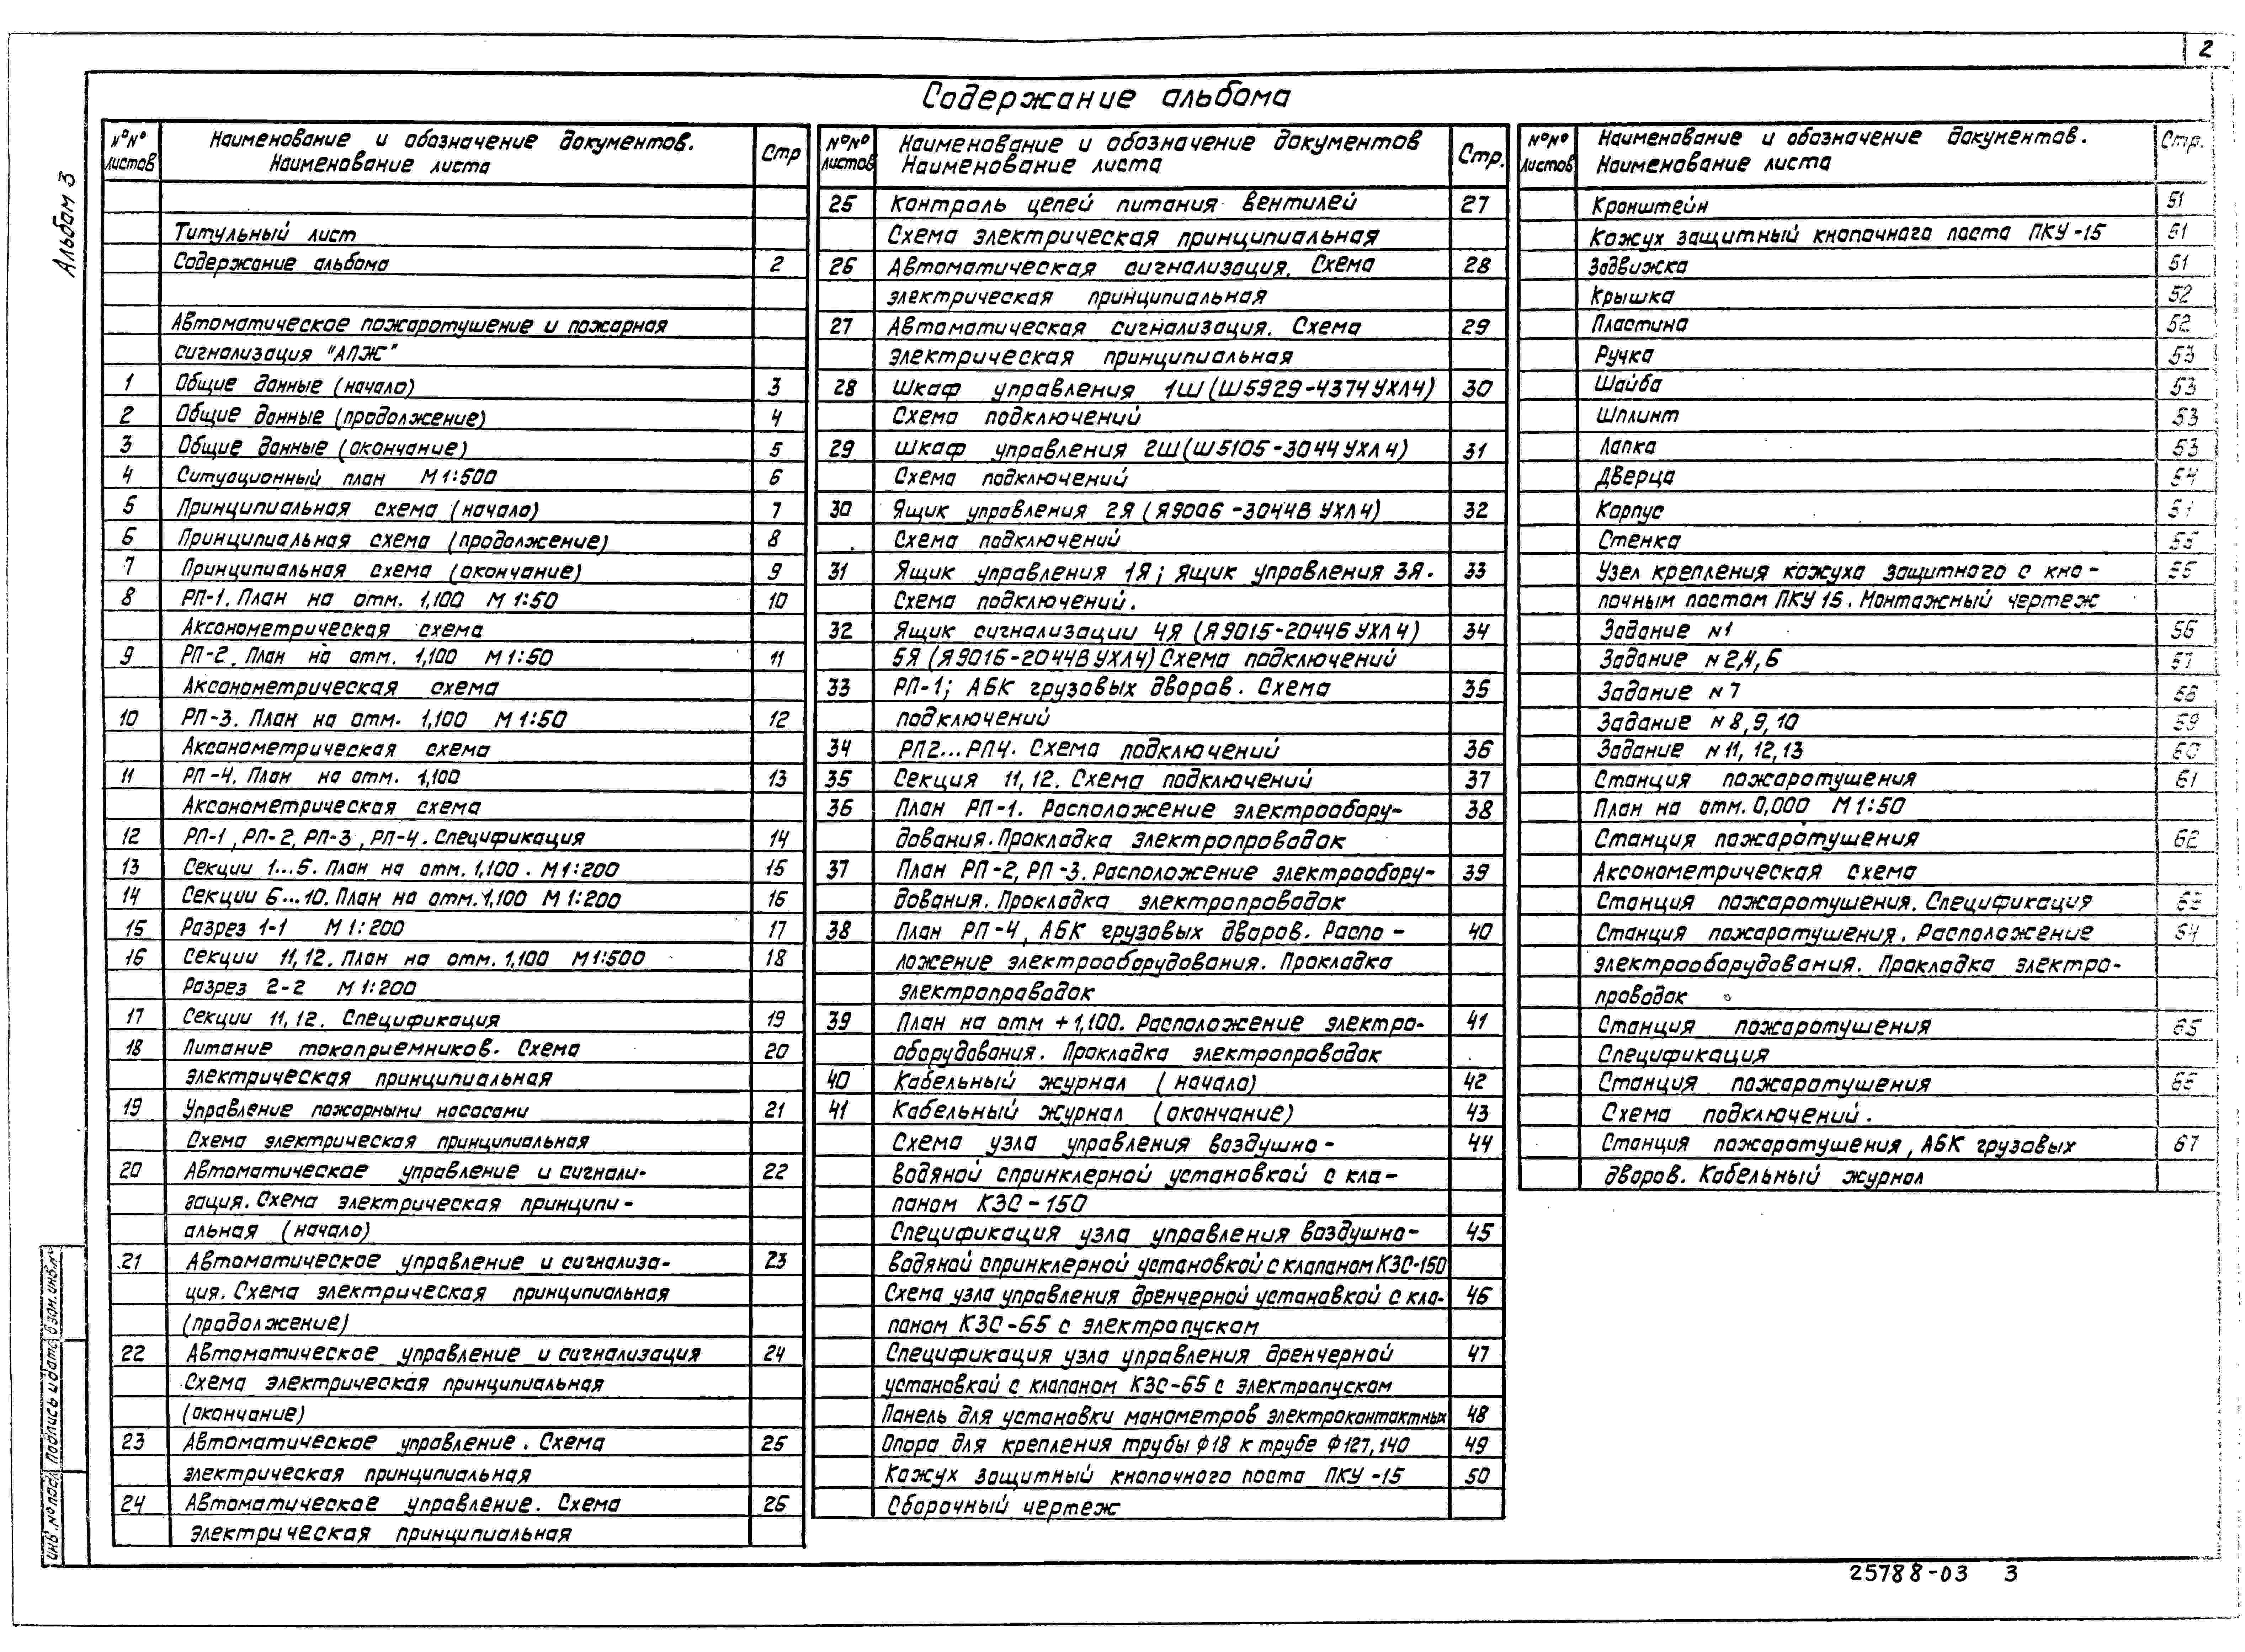 2
Содержание альбома
Альбом 3
№№ листов
Наименование и обозначение документов. Наименование листа
Стр
Титульный лист
Содержание альбома 2
Автоматическое пожаротушение и пожарная
сигнализация "АПЖ"
1 Общие данные (начало) 3
2 Общие данные (продолжение) 4
3 Общие данные (окончание) 5
4 Ситуационный план М 1:500 6
5 Принципиальная схема (начало) 7
6 Принципиальная схема (продолжение) 8
7 Принципиальная схема (окончание) 9
8 РП-1. План на отм. 1,100 М 1:50 10
Аксонометрическая схема
9 РП-2. План на отм. 1,100 М 1:50 11
Аксонометрическая схема
10 РП-3. План на отм. 1,100 М 1:50 12
Аксонометрическая схема
11 РП-4. План на отм. 1,100 13
Аксонометрическая схема
12 РП-1, РП-2, РП-3, РП-4. Спецификация 14
13 Секции 1...5. План на отм. 1,100. М 1:200 15
14 Секции 6...10. План на отм. 1,100 М 1:200 16
15 Разрез 1-1 М 1:200 17
16 Секции 11, 12. План на отм. 1,100 М 1:500 18
Разрез 2-2 М 1:200
17 Секции 11, 12. Спецификация 19
18 Питание токоприемников. Схема 20
электрическая принципиальная
19 Управление пожарными насосами 21
Схема электрическая принципиальная
20 Автоматическое управление и сигнали- 22
зация. Схема электрическая принципи-
альная (начало)
21 Автоматическое управление и сигнализа- 23
ция. Схема электрическая принципиальная
(продолжение)
22 Автоматическое управление и сигнализация 24
Схема электрическая принципиальная
(окончание)
23 Автоматическое управление. Схема 25
электрическая принципиальная
24 Автоматическое управление. Схема 26
электрическая принципиальная
№№ листов
Наименование и обозначение документов Наименование листа
Стр.
25 Контроль цепей питания вентилей 27
Схема электрическая принципиальная
26 Автоматическая сигнализация. Схема 28
электрическая принципиальная
27 Автоматическая сигнализация. Схема 29
электрическая принципиальная
28 Шкаф управления 1Ш (Ш5929-4374 УХЛ4) 30
Схема подключений
29 Шкаф управления 2Ш (Ш5105-3044 УХЛ4) 31
Схема подключений
30 Ящик управления 2Я (Я9006-3044В УХЛ4) 32
Схема подключений
31 Ящик управления 1Я; ящик управления 3Я. 33
Схема подключений.
32 Ящик сигнализации 4Я (Я9015-2044Б УХЛ4) 34
5Я (Я9016-2044В УХЛ4) Схема подключений
33 РП-1; АБК грузовых дворов. Схема 35
подключений
34 РП2...РП4. Схема подключений 36
35 Секция 11, 12. Схема подключений 37
36 План РП-1. Расположение электрообору- 38
дования. Прокладка электропроводок
37 План РП-2, РП-3. Расположение электрообору- 39
дования. Прокладка электропроводок
38 План РП-4, АБК грузовых дворов. Распо- 40
ложение электрооборудования. Прокладка
электропроводок
39 План на отм +1,100. Расположение электро- 41
оборудования. Прокладка электропроводок
40 Кабельный журнал (начало) 42
41 Кабельный журнал (окончание) 43
Схема узла управления воздушно- 44
водяной спринклерной установкой с кла-
паном КЗС-150
Спецификация узла управления воздушно- 45
водяной спринклерной установкой с клапаном КЗС-150
Схема узла управления дренчерной установкой с кла- 46
паном КЗС-65 с электропуском
Спецификация узла управления дренчерной 47
установкой с клапаном КЗС-65 с электропуском
Панель для установки манометров электроконтактных 48
Опора для крепления трубы ф18 к трубе ф127, 140 49
Кожух защитный кнопочного поста ПКУ-15 50
Сборочный чертеж
№№ листов
Наименование и обозначение документов. Наименование листа
Стр.
Кронштейн 51
Кожух защитный кнопочного поста ПКУ-15 51
Задвижка 51
Крышка 52
Пластина 52
Ручка 53
Шайба 53
Шплинт 53
Лапка 53
Дверца 54
Корпус
Стенка 55
Узел крепления кожуха защитного с кно- 55
почным постом ПКУ 15. Монтажный чертеж
Задание №1 56
Задание №2,4,6 57
Задание №7 58
Задание №8, 9, 10 59
Задание №11, 12, 13 60
Станция пожаротушения 61
План на отм. 0,000 М 1:50
Станция пожаротушения 62
Аксонометрическая схема
Станция пожаротушения. Спецификация 63
Станция пожаротушения. Расположение 64
электрооборудования. Прокладка электро-
проводок
Станция пожаротушения 65
Спецификация
Станция пожаротушения 66
Схема подключений.
Станция пожаротушения, АБК грузовых 67
дворов. Кабельный журнал
Инв.№подл Подпись и дата Взам.инв.№
25788-03 3